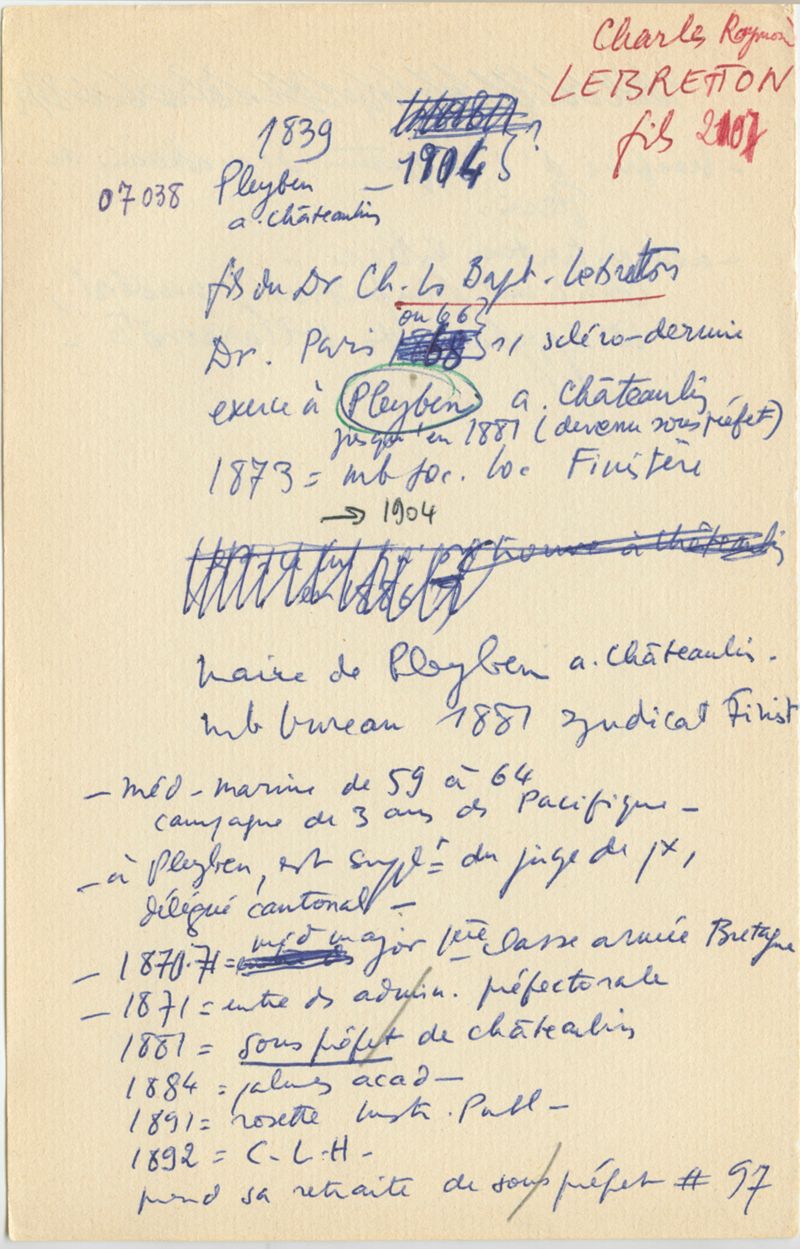 Charles Raymond
LEBRETTON
fils 2107
1839
1904 ?
07038 Pleyben –
a. Châteaulin
fils du Dr Ch. Ls Bapt. Lebretton
ou 66 ?
Dr. Paris 68 ? scléro-dermie
exerce à Pleyben a. Châteaulin
jusqu'en 1881 (devenu sous préfet)
1873 = mb soc. loc Finistère
→ 1904
trouve à Châteaulin
maire de Pleyben a. Châteaulin.
mb bureau 1881 syndicat Finist
– méd-marine de 59 à 64
campagne de 3 ans ds Pacifique –
– à Pleyben, est supplt du juge de px,
délégué cantonal –
– 1870.71 = méd major 1ère classe armée Bretagne
– 1871 = entre ds admin. préfectorale
1881 = sous préfet de Châteaulin
1884 = palmes acad –
1891 = rosette Instr. Publ –
1892 = C-L-H-
prend sa retraite de sous/préfet # 97